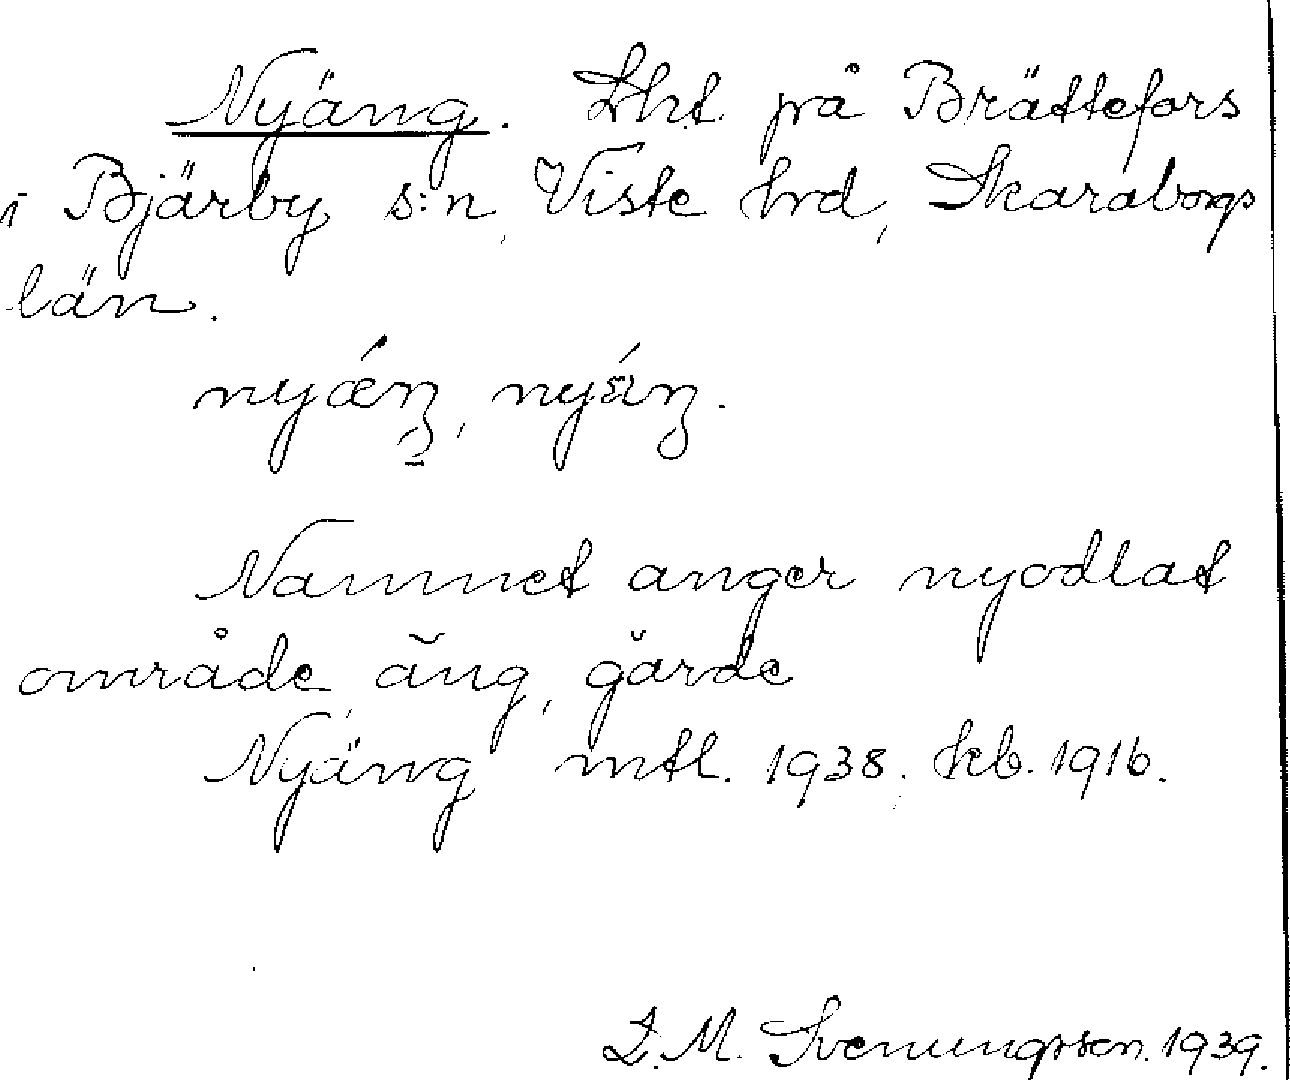 Nyäng. Lht. på Brättefors
i Bjärby s:n, Viste hrd, Skaraborgs
län.
nyǽŋ, nyä́ŋ.
Namnet anger nyodlat
område, äng, gärde
Nyäng mtl. 1938, kb. 1916.
D. M. Svenungsson. 1939.